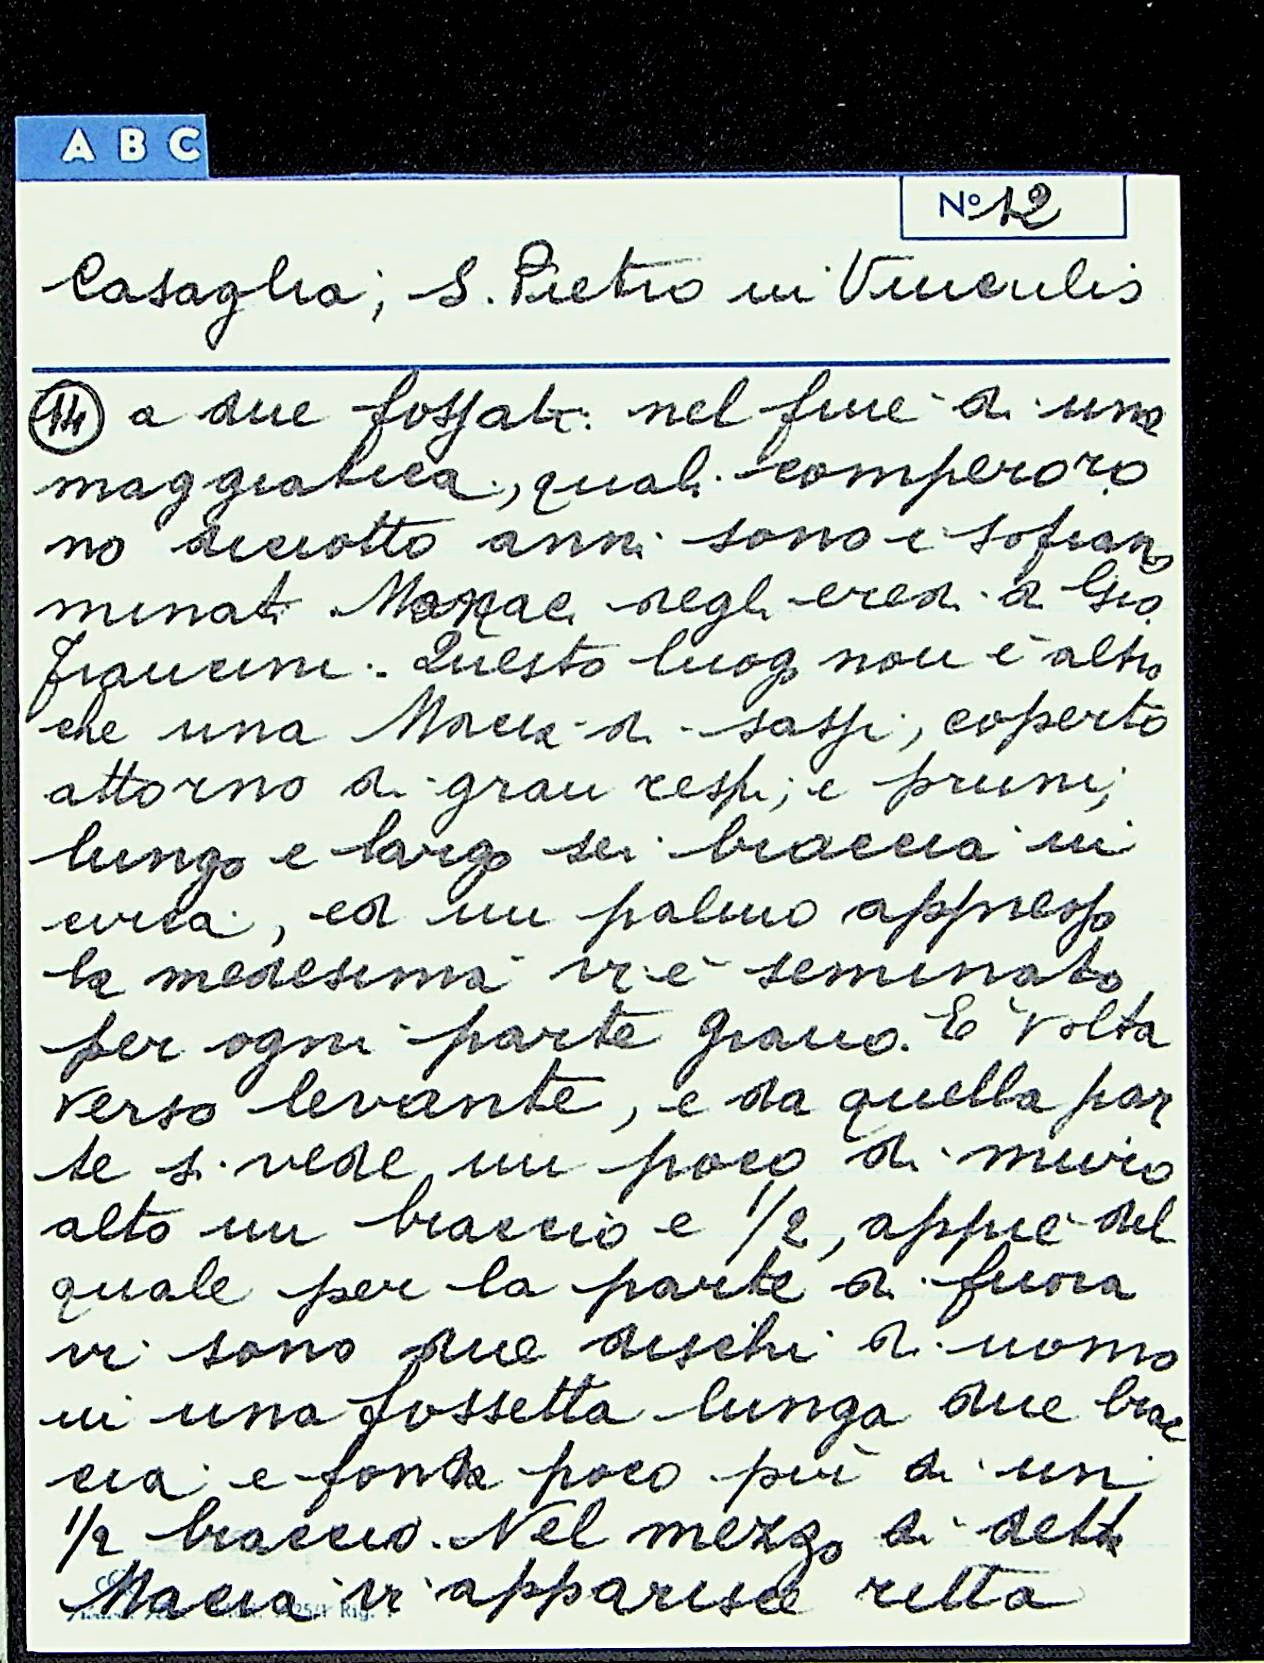 A B C
Nº 12
Casaglia, S. Pietro in Vinculis
14 a due fossati nel fine di una
maggiatica, quali comperoro
no diciotto anni sono i sofran
minati Monaci degli eredi di Gio
Francini. Questo luogo non è altro
che una Macia di sassi, coperto
attorno di gran cespi, e pruni,
lungo e largo sei braccia in
circa, ed un palmo appresso
la medesima vi è seminato
per ogni parte grano. E volta
verso levante, e da quella par
te si vede un poco di muro
alto un braccio e 1/2, appiè del
quale per la parte di fuora
vi sono due dischi di uomo
in una fossetta lunga due brac
cia e fonda poco più di un
1/2 braccio. Nel mezzo di detta
Macia vi apparisce retta